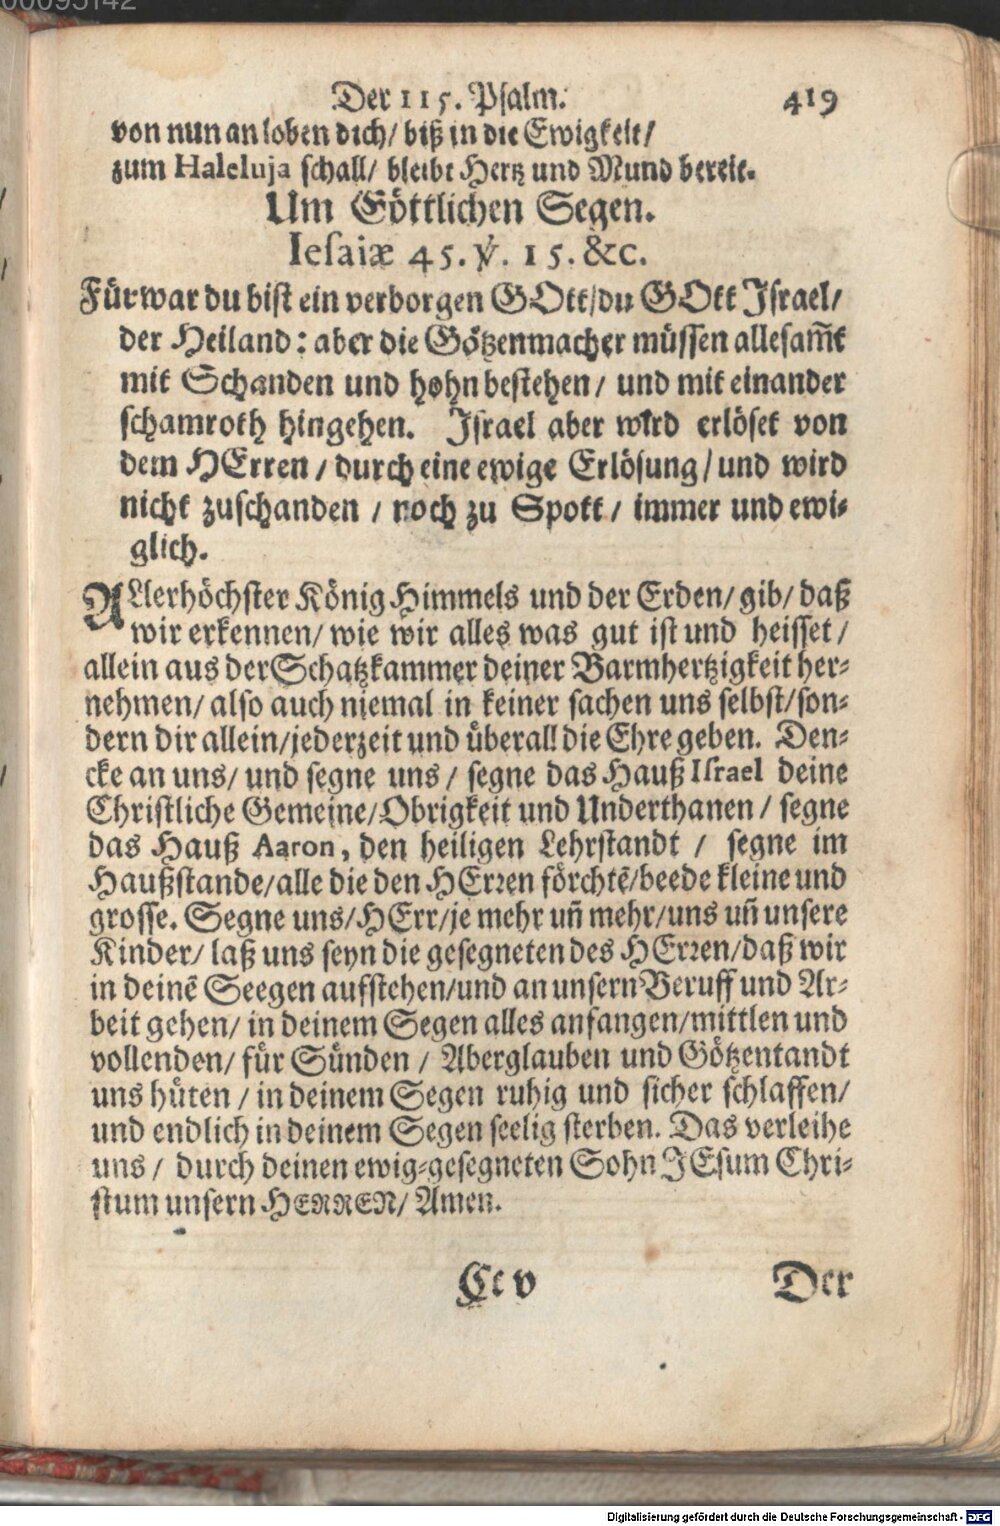 00095142
Der 115. Psalm. 419
von nun an loben dich/ biß in die Ewigkeit/
zum Haleluja schall/ bleibt Hertz und Mund bereit.
Um Göttlichen Segen.
Iesaiæ 45. ℣. 15. &c.
Fürwar du bist ein verborgen GOtt/du GOtt Israel/
der Heiland: aber die Götzenmacher müssen allesam̃t
mit Schanden und hohn bestehen/ und mit einander
schamroth hingehen. Israel aber wird erlöset von
dem HErren/ durch eine ewige Erlösung/ und wird
nicht zuschanden / noch zu Spott/ immer und ewi-
glich.
ALlerhöchster König Himmels und der Erden/ gib/ daß
wir erkennen/ wie wir alles was gut ist und heisset/
allein aus der Schatzkammer deiner Barmhertzigkeit her-
nehmen/ also auch niemal in keiner sachen uns selbst/son-
dern dir allein/jederzeit und überall die Ehre geben. Den-
cke an uns/ und segne uns/ segne das Hauß Israel deine
Christliche Gemeine/Obrigkeit und Underthanen/ segne
das Hauß Aaron, den heiligen Lehrstandt / segne im
Haußstande/alle die den HErren förchtē/beede kleine und
grosse. Segne uns/HErr/je mehr uñ mehr/uns uñ unsere
Kinder/ laß uns seyn die gesegneten des HErren/daß wir
in deinē Seegen aufstehen/und an unsern Beruff und Ar-
beit gehen/ in deinem Segen alles anfangen/mittlen und
vollenden/ für Sünden / Aberglauben und Götzentandt
uns hüten / in deinem Segen ruhig und sicher schlaffen/
und endlich in deinem Segen seelig sterben. Das verleihe
uns/ durch deinen ewig-gesegneten Sohn JEsum Chri-
stum unsern HERREN/ Amen.
Cc v Der
Digitalisierung gefördert durch die Deutsche Forschungsgemeinschaft - DFG